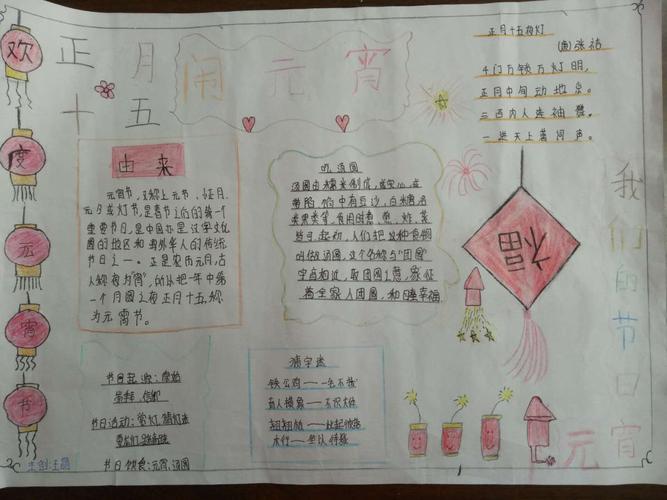 欢
度
元
宵
节
正月
十五
闹元宵
正月十五夜灯
(唐)张祜
千门万锁万灯明,
正月中旬动地京。
三百内人连袖舞,
一时天上著词声。
由来
元宵节,又称上元节、小正月、
元夕或灯节,是春节之后的第一个
重要节日,是中国亦是汉字文化
圈的地区和海外华人的传统
节日之一。正是农历元月,古
人称夜为"宵",所以把一年中第
一个月圆之夜正月十五称
为元宵节。
吃汤圆
汤圆由糯米制成,或实心,或
带陷。陷中有豆沙、白糖
类果类等,食用时煮、煎、炸、蒸
皆可。起初,人们把这种食物
叫做汤圆,这个名称与"团圆"
字点相近,取团圆之意,象征
着全家人团圆,和睦幸福
福
节日起源:
节日活动:赏灯、猜灯迷
节日饮食:元宵、汤圆
猜字迷
铁公鸡——一毛不拔
盲人摸象——不识大体
翘翘板——此起彼落
我们的节日
元宵